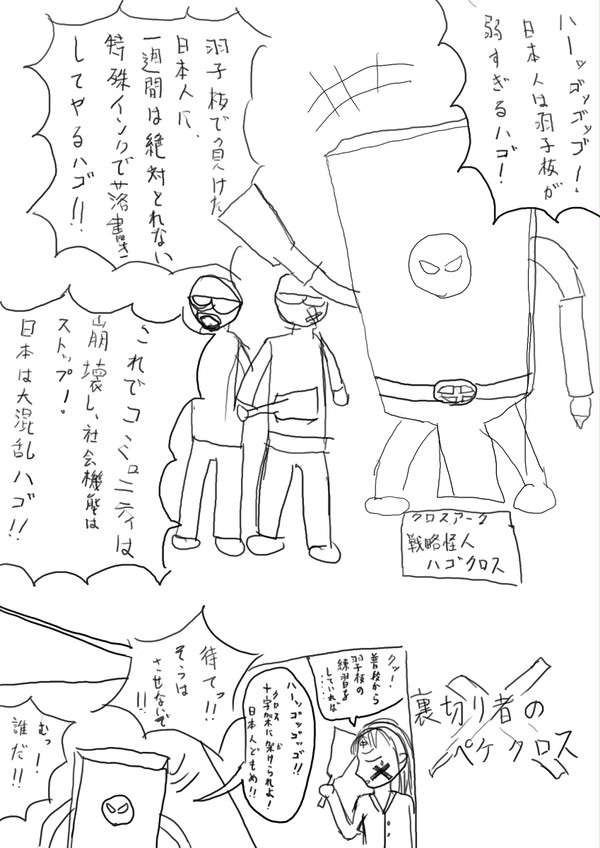 ハーッゴッゴッゴ!
日本人は羽子板が
弱すぎるハゴ!
羽子板での負けた
日本人に、
一週間は絶対とれない
特殊インクで落書き
してやるハゴ!!
これでコミュニティは
崩壊し、社会機能は
ストップ!
日本は大混乱ハゴ!!
クロスアーク
戦略怪人
ハゴクロス
裏切り者の
ペケクロス
クッ!
普段から
羽子板の
練習を
していれば
……
ハーッゴッゴッゴ!!
クロス
十字架に架けられよ!
か
日本人どもめ!!
待てっ!!
そうは
させないで
!!
むっ!
誰だ!!